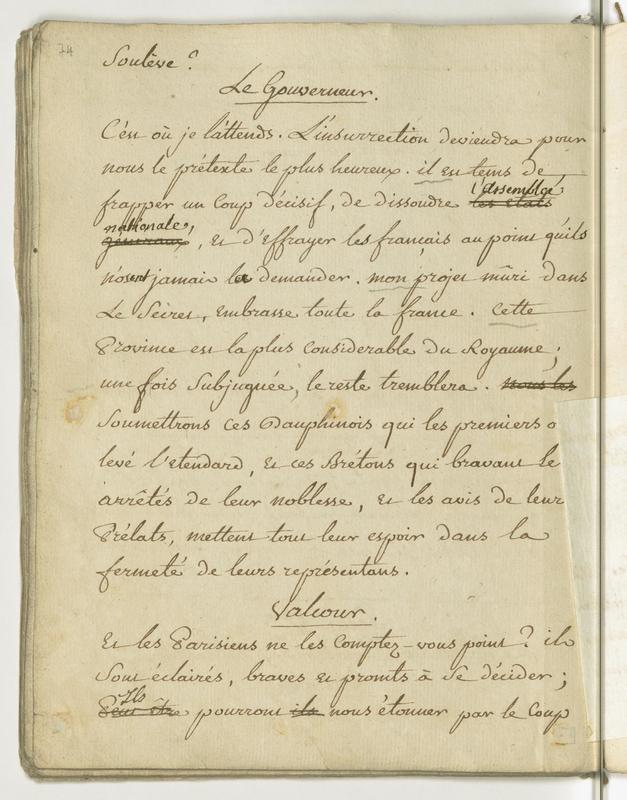 74
Soulève ?
Le Gouverneur.
C'est où je l'attends. L'insurrection deviendra pour
nous le prétexte le plus heureux. il est tems de
frapper un Coup décisif, de dissoudre les Etats l'assemblée
généraux nationale, et d'effrayer les français au point qu'ils
n'osent jamais la demander. mon projet mûri dans
Le Sécret, Embrasse toute la france. Cette
Province est la plus Considerable du Royaume ;
une fois Subjuguée, le reste tremblera. nous les
Soumettrons Ces Dauphinois qui les premiers o
levé l'etendard, et ces Brétons qui bravant Le
arrêtés de leur noblesse, et les avis de leur
Prélats, mettent tout leur espoir dans la
fermeté de leurs représentans.
Valcour.
Et les Parisiens ne les Comptez-vous point ? ils
Sont éclairés, braves et promts à Se décider ;
Peut être Ils pourront ils nous étonner par le Coup